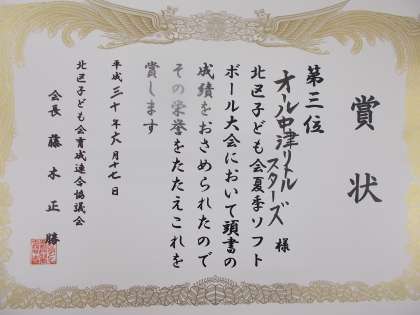 賞状
第三位
オール中津リトル
スターズ 様
北区子ども会夏季ソフト
ボール大会において頭書の
成績をおさめられたので
その栄誉をたたえこれを
賞します
平成三十年六月十七日
北区子ども会育成連合協議会
会長 藤木正勝